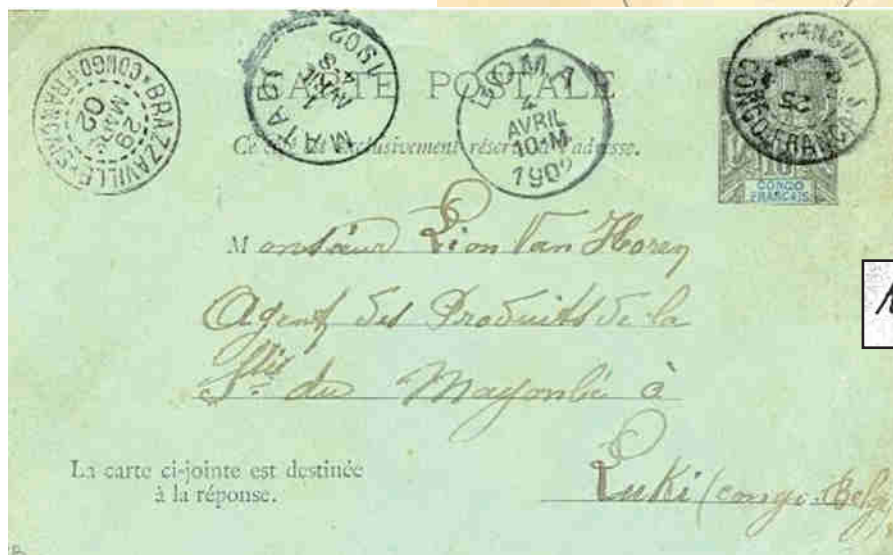 BRAZZAVILLE
CONGO-FRANCAIS
29
MARS
02
MATADI
1
AVRIL
1902
BOMA
4
AVRIL
10-M
190
BANGUI
CONGO-FRANCAIS
25
CARTE POSTALE
Ce côté est exclusivement réservé à l'adresse.
10
CONGO
FRANÇAIS
Monsieur Léon Van Horen
Agent des Produits de la
Sté du Mayombe à
Luki (Congo Belge
La carte ci-jointe est destinée
à la réponse.